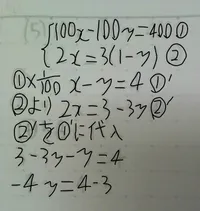 (5)
{100x-100y=400①
2x=3(1-y) ②
①×1/100 x-y=4 ①'
②より 2x=3-3y②'
②'を①'に代入
3-3y-y=4
-4y=4-3